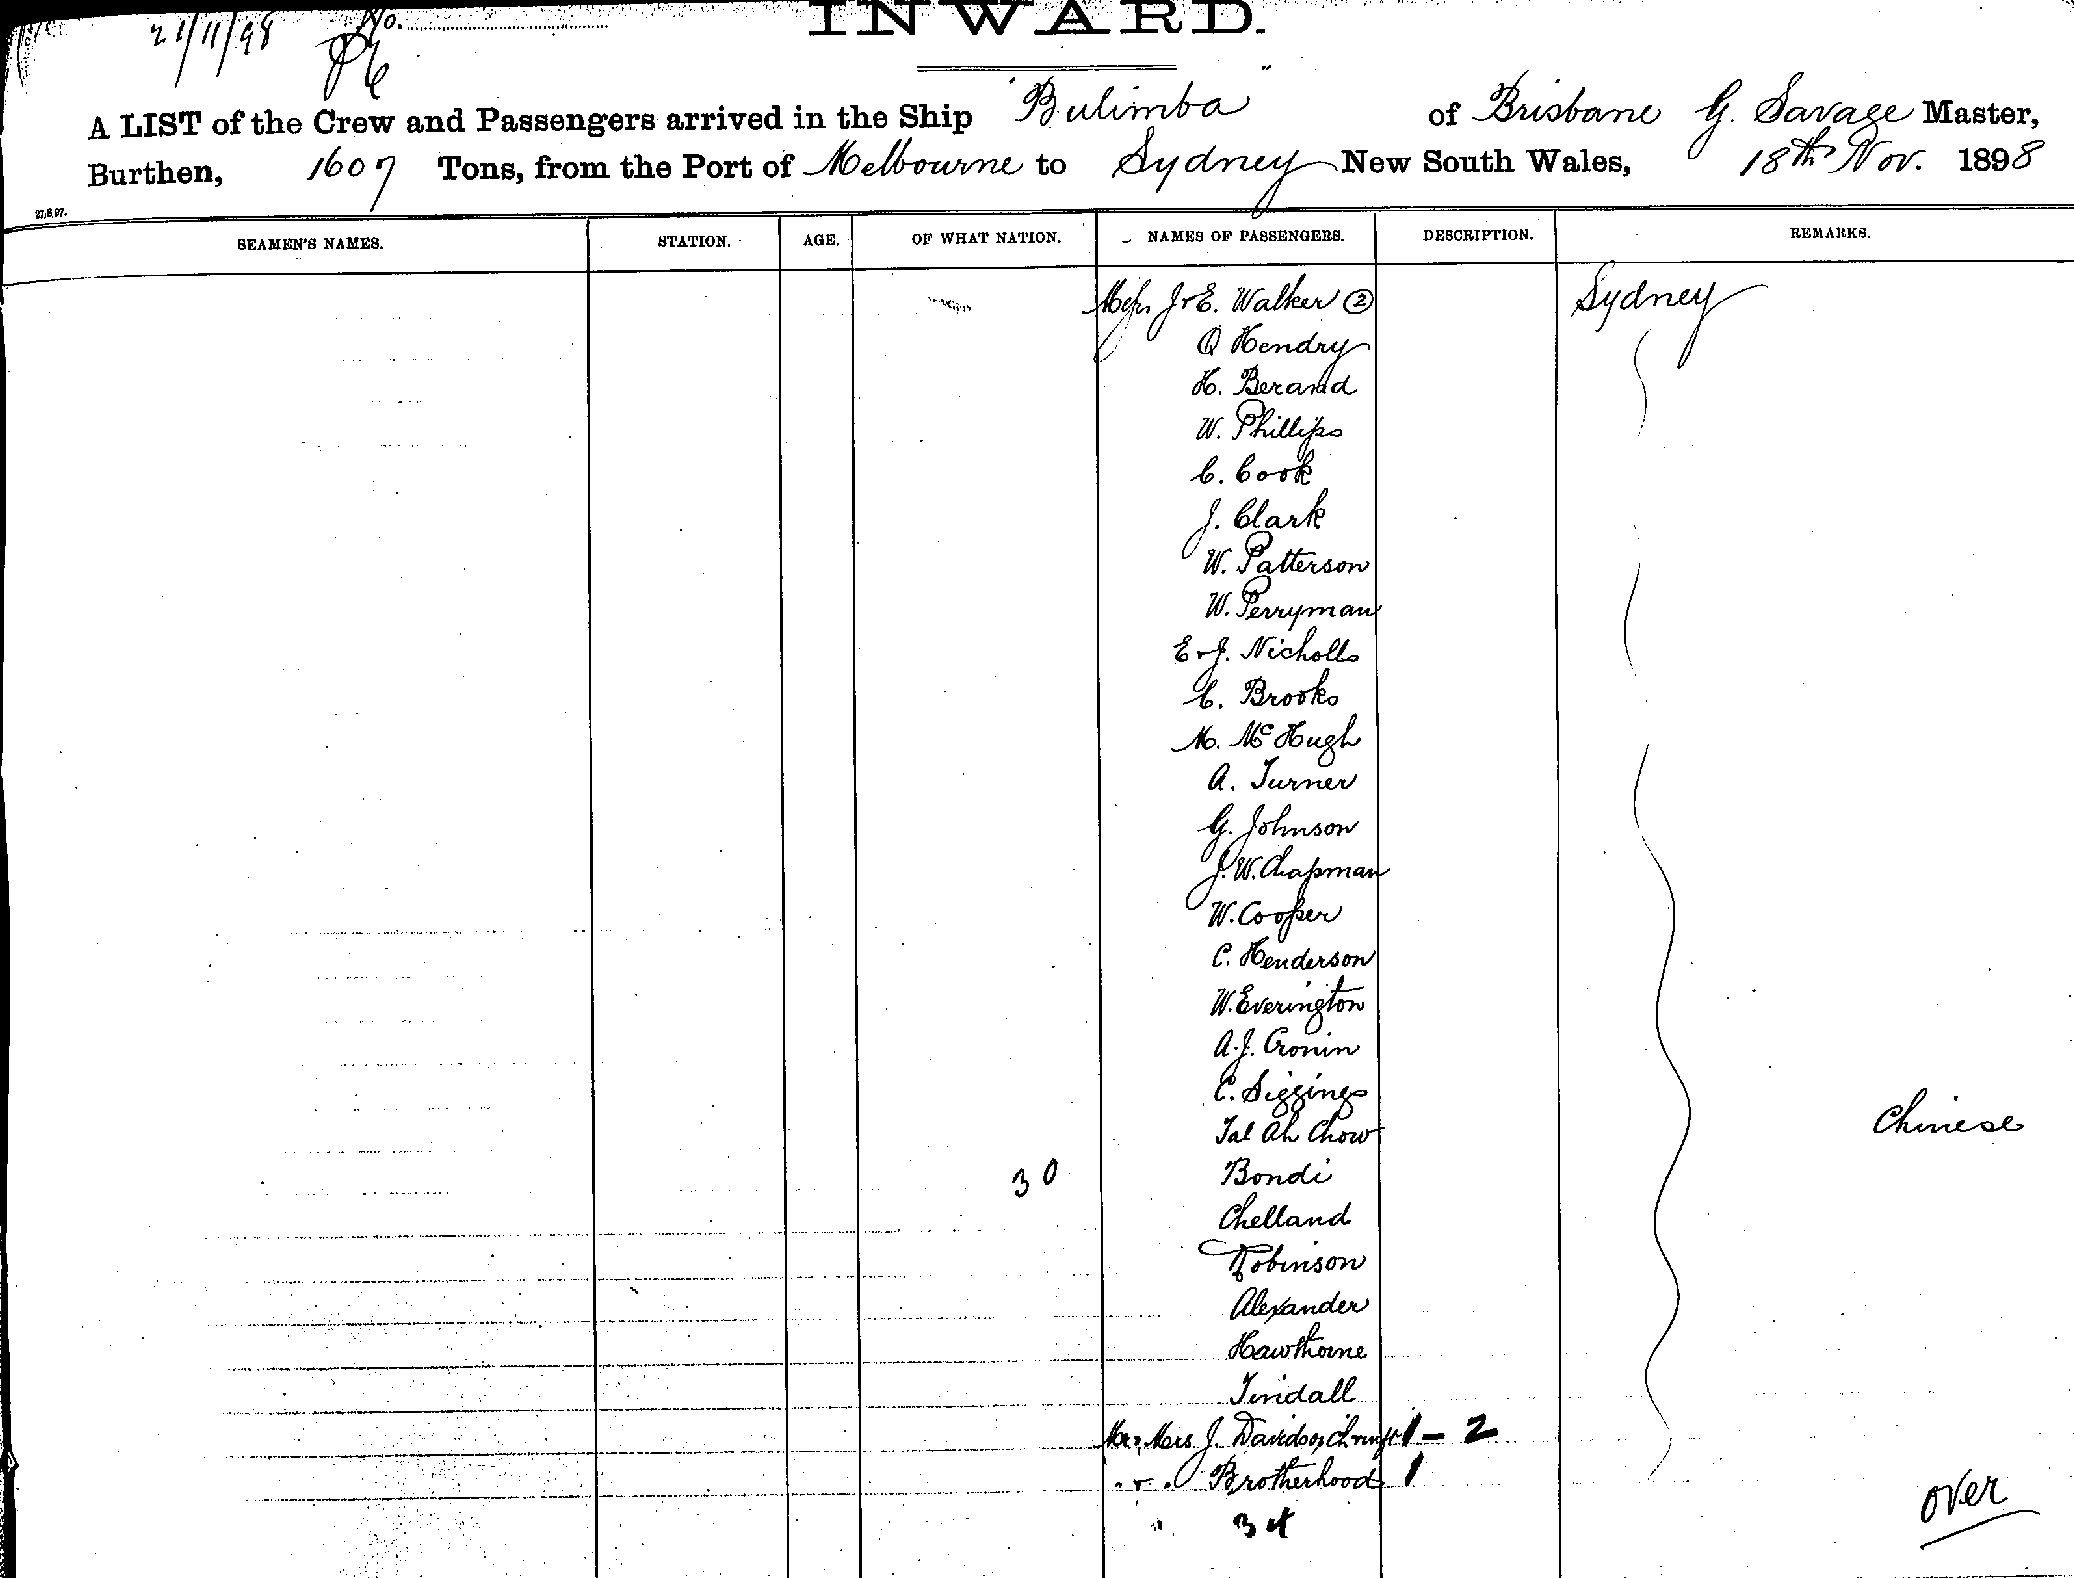 21/11/98 No.
INWARD.
A LIST of the Crew and Passengers arrived in the Ship "Bulimba" of Brisbane G. Savage Master,
Burthen, 1607 Tons, from the Port of Melbourne to Sydney New South Wales, 18th Nov. 1898
27,8,97.
SEAMEN'S NAMES. STATION. AGE. OF WHAT NATION. NAMES OF PASSENGERS. DESCRIPTION. REMARKS.
Messrs J & E. Walker ② Sydney
Hendry
H. Berand
W. Phillips
C. Cook
J. Clark
W. Patterson
W. Perryman
E & J. Nicholls
C. Brooks
M. McHugh
A. Turner
G. Johnson
J. W. Chapman
W. Cooper
C. Henderson
W. Everington
A. J. Cronin
C. Siggings
Tal Ah Chow Chinese
30 Bondi
Chelland
Robinson
Alexander
Hawthorne
Tindall
Mr & Mrs J. Davidson 1 - 2
" & " Brotherhood 1
" 34
over